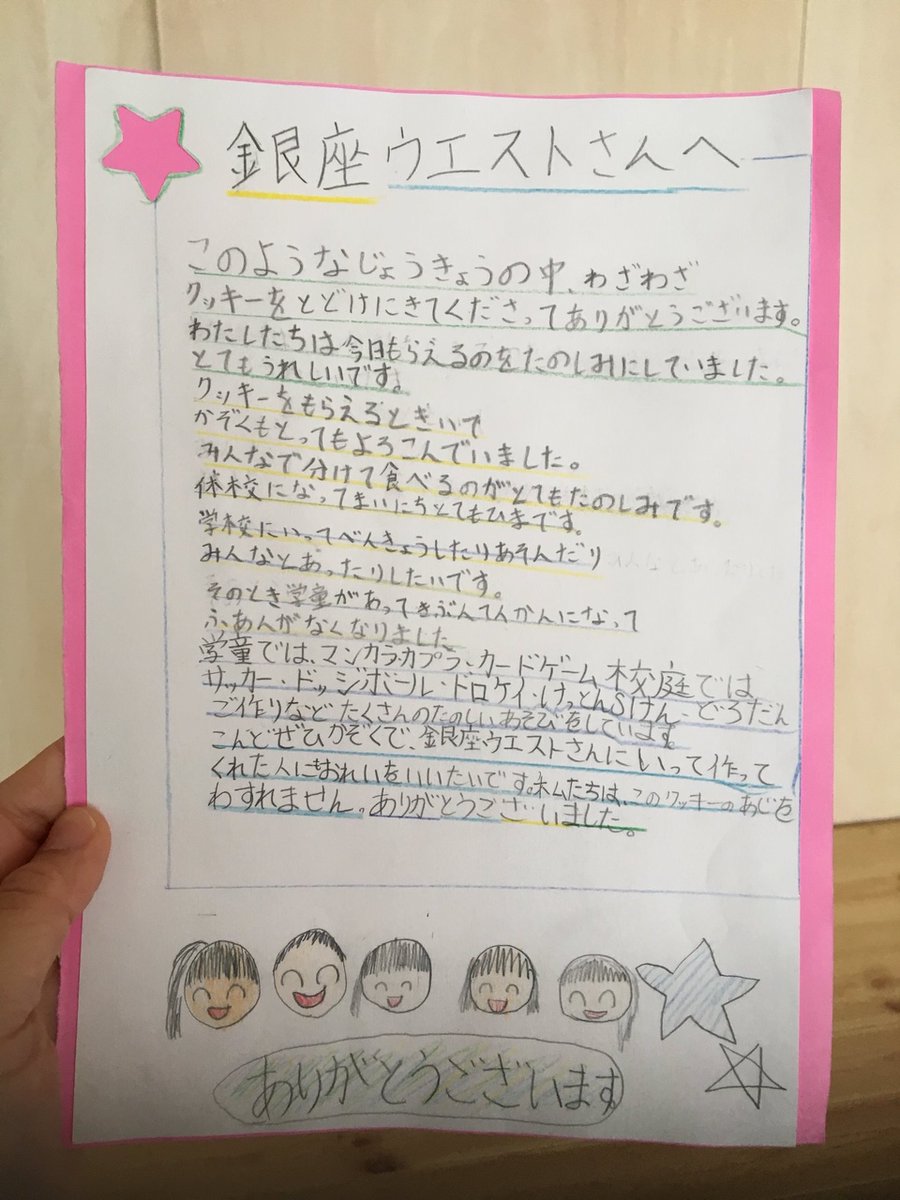 銀座ウエストさんへ
このようなじょうきょうの中、わざわざ
クッキーをとどけにきてくださってありがとうございます。
わたしたちは今日もらえるのをたのしみにしていました。
とてもうれしいです。
クッキーをもらえるときいて
かぞくもとってもよろこんでいました。
みんなで分けて食べるのがとてもたのしみです。
休校になってまいにちとてもひまです。
学校にいってべんきょうしたりあそんだり
みんなとあったりしたいです。
そのとき学童があってきぶんてんかんになって
ふあんがなくなりました
学童では、マンカラ・カプラ・カードゲーム、校庭では
サッカー・ドッジボール・ドロケイ・けっとんSけん、どろだん
ご作りなどたくさんのたのしいあそびをしています。
こんどぜひかぞくで、銀座ウエストさんにいって作って
くれた人におれいをいいたいです。私たちは、このクッキーのあじを
わすれません。ありがとうございました。
ありがとうございます